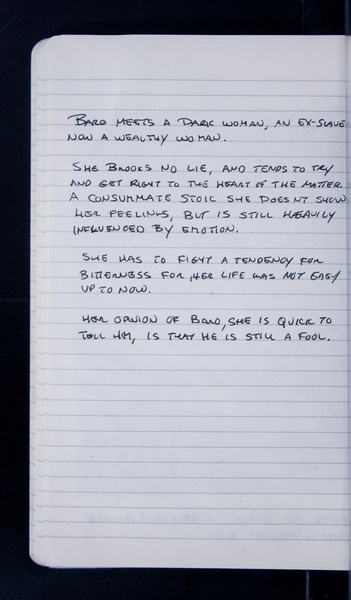 BARD MEETS A DARK WOMAN, AN EX-SLAVE
NOW A WEALTHY WOMAN.
SHE BROOKS NO LIE, AND TENDS TO TRY
AND GET RIGHT TO THE HEART OF THE MATTER.
A CONSUMMATE STOIC SHE DOESNT SHOW
HER FEELINGS, BUT IS STILL HEAVILY
INFLUENCED BY EMOTION.
SHE HAS TO FIGHT A TENDENCY FOR
BITTERNESS FOR HER LIFE WAS NOT EASY
UP TO NOW.
HER OPINION OF BARD, SHE IS QUICK TO
TELL HIM, IS THAT HE IS STILL A FOOL.